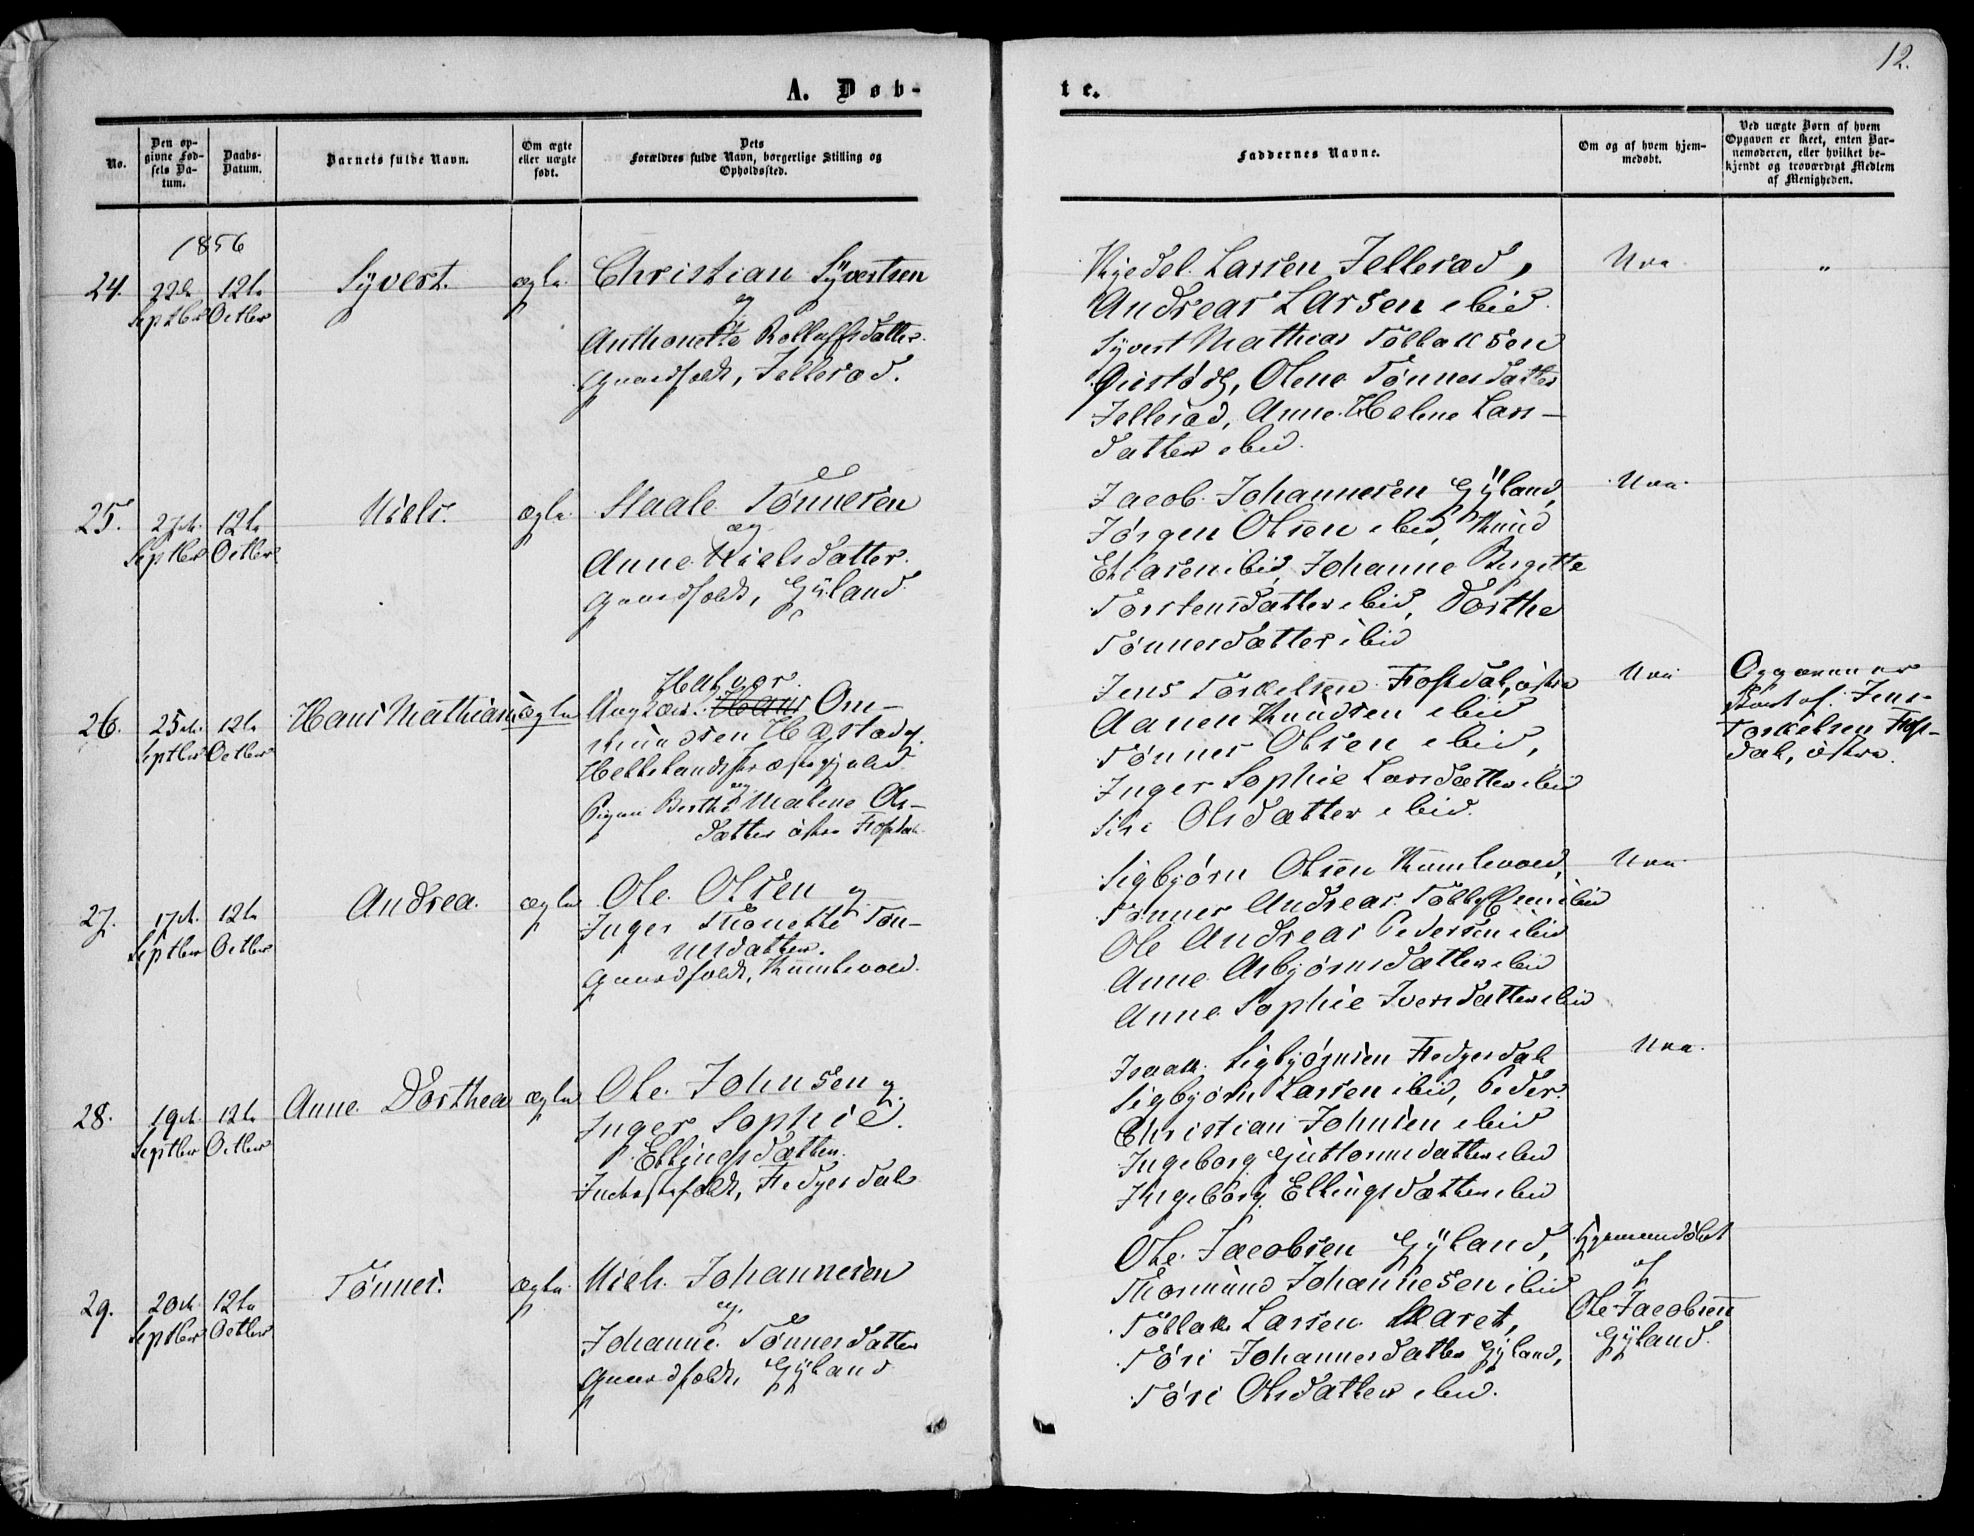 12.
A. Døb-
te.
No.
Den op-
givne Fød-
sels Da-
tum.
Daabs-
Datum.
Barnets fulde Navn.
Om ægte
eller uægte
født.
Dets
Forældres fulde Navn, borgerlige Stilling og
Opholdssted.
Faddernes Navne.
Om og af hvem hjem-
medøbt.
Ved uægte Børn af hvem
Opgaven er skeet, enten Bar-
nemoderen, eller hvilket be-
kjendt og troværdigt Medlem
af Menigheden.
1856
24.
22de
Septbr
12te
Octbr
Syvert.
ægte
Christian Syvertsen
og
Anthonette Rolluffsdatter.
Gaardfolk, Jellesad.
Kjedel Larsen Jellesad,
Andreas Larsen ibid.
Syvert Mathias Tollaksen
Olene Tønnesdatter
Jellesad, Anne Helene Lars-
datter ibid.
Nei.
"
25.
27de
Septbr
12te
Octbr
Niels.
ægte
Staale Tønnesen
og
Anne Nielsdatter.
Gaardfolk, Gyland.
Jacob Johannesen Gyland,
Jørgen Olsen ibid, Knud
Eliasen ibid, Johanne Birgitte
Torstensdatter ibid, Dorthe
Tønnesdatter ibid
Nei.
26.
25de
Septbr
12te
Octbr
Hans Mathias
uægte
Halvor
Ungkarl Hans Om-
mundsen Hæstad,
Hellelands Præstegjeld
og
Pigen Berthe Malene Ols-
datter østre Flosdal.
Jens Torkelsen Flosdal, østre
Aanen Knudsen ibid
Tønnes Olsen ibid,
Inger Sophie Larsdatter ibid
Siri Olsdatter ibid.
Nei
Opgaven er
skeet af Jens
Torkelsen Flos-
dal, østre.
27.
17de
Septbr
12te
Octbr
Andrea.
ægte
Ole Olsen og
Inger Thonette Tøn-
nesdatter.
Gaardfolk, Kumlevold.
Sigbjørn Olsen Kumlevold,
Tønnes Andreas ibid
Ole Andreas Pedersen ibid
Anne Asbjørnsdatter ibid
Anne Sophie Iversdatter ibid
Nei.
28.
19de
Septbr
12te
Octbr
Anne Dorthea
ægte
Ole Johnsen og
Inger Sophie
Ellingsdatter.
Inderstfolk, Fedgesdal
Isaak Sigbjørnsen Fedgesdal
Sigbjørn Larsen ibid, Peder
Christian Johnsen ibid
Ingeborg Guttormsdatter ibid
Ingeborg Ellingsdatter ibid
Nei.
29.
20de
Septbr
12te
Octbr
Tønnes.
ægte
Niels Johannesen
og
Johanne Tønnesdatter
Gaardfolk, Gyland
Ole Jacobsen Gyland,
Thormund Johannesen ibid
Tollak Larsen Skaret,
Tøri Johannesdatter Gyland,
Tøri Olsdatter ibid.
Hjemmedøbt
af
Ole Jacobsen
Gyland.